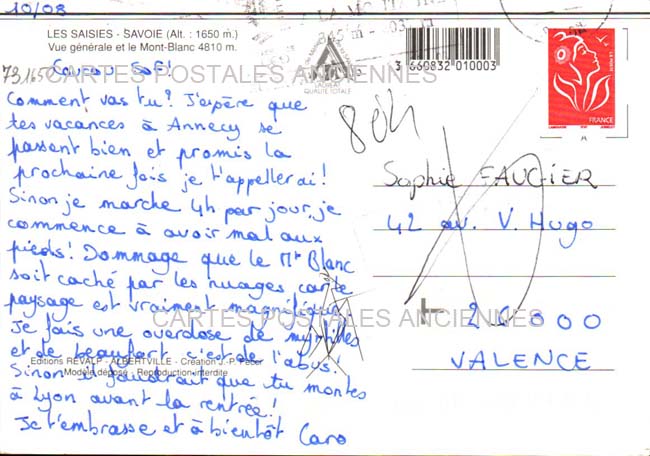 10/08
LES SAISIES - SAVOIE (Alt. : 1650 m.)
Vue générale et le Mont-Blanc 4810 m.
73.1650
Coucou Sofi
CARTES POSTALES ANCIENNES
Comment vas tu? J'espère que
tes vacances à Annecy se
passent bien et promis la
prochaine fois je t'appellerai!
Sinon je marche 4h par jour, je
commence à avoir mal aux
pieds! Dommage que le Mt Blanc
soit caché par les nuages car le
paysage est vraiment magnifique.
CARTES POSTALES ANCIENNES
Je fais une overdose de myrtilles
et de beaufort c'est de l'abus!
Editions REVALP - ALBERTVILLE - Création J.-P. Feber
Sinon il faudrait que tu montes
Modèle déposé - Reproduction interdite
à Lyon avant la rentrée!
Je t'embrasse et à bientôt Caro
LAURÉAT
QUALITÉ TOTALE
3 660832 010003
LA POSTE
FRANCE
A
Sophie FAUGIER
42 av. V. Hugo
26000
VALENCE